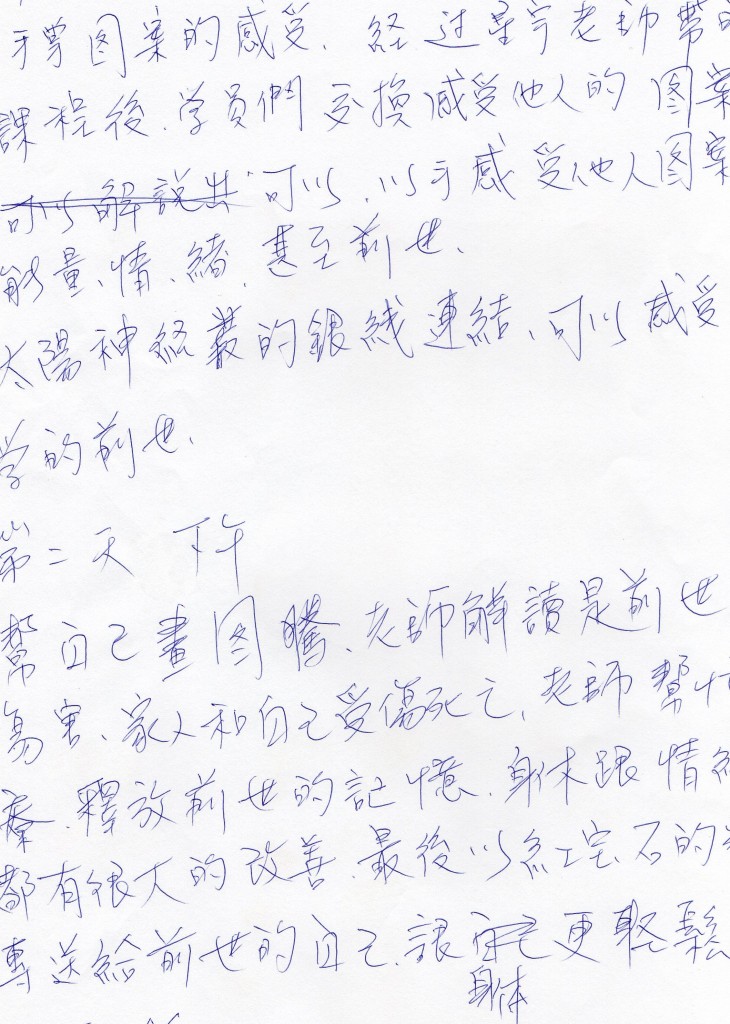 手掌图案的感受、經过星宇老師帶的
課程後、学員們交換感受他人的图案
可以解說出 可以、以手感受他人图案
能量、情、緒、甚至前世、
太陽神経叢的銀线連結、可以感受
学的前世、
第二天 下午
幫自己畫图騰、老師解讀是前世
傷害、家人和自己受傷死亡、老師幫忙
療、釋放前世的記憶、身体跟情緒
都有很大的改善、最後以紅宝石的
專送給前世的自己、讓自己更輕鬆
身体